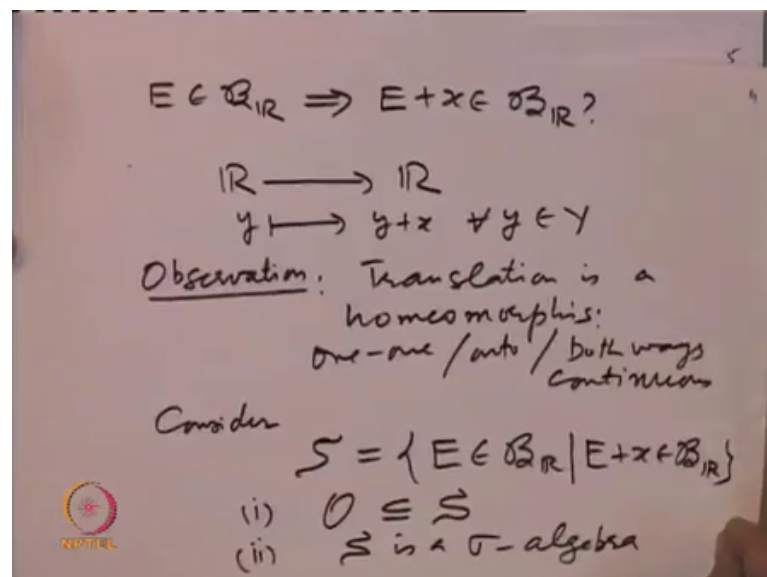 5
E ∈ 𝓑_ℝ ⟹ E + x ∈ 𝓑_ℝ ?
ℝ ⟶ ℝ
y ⟼ y + x ∀ y ∈ Y
Observation: Translation is a
homeomorphis:
one-one / onto / both ways
continuous
Consider
S = { E ∈ 𝓑_ℝ | E + x ∈ 𝓑_ℝ }
(i) O ⊆ S
(ii) S is a σ-algebra
NPTEL